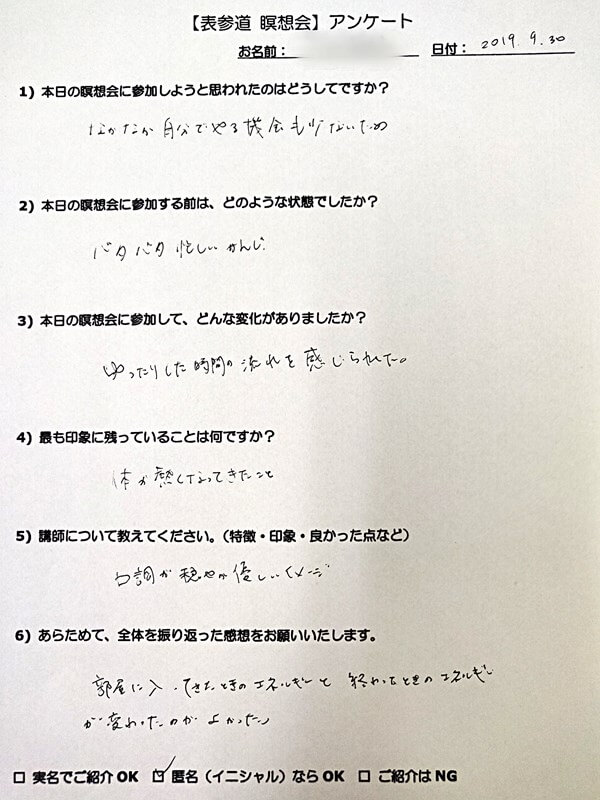 【表参道 瞑想会】アンケート
お名前： 日付： 2019. 9. 30
1）本日の瞑想会に参加しようと思われたのはどうしてですか？
なかなか自分でやる機会も少ないため
2）本日の瞑想会に参加する前は、どのような状態でしたか？
バタバタ忙しいかんじ
3）本日の瞑想会に参加して、どんな変化がありましたか？
ゆったりした時間の流れを感じられた。
4）最も印象に残っていることは何ですか？
体が熱くなってきたこと
5）講師について教えてください。（特徴・印象・良かった点など）
口調が穏やか優しいイメージ
6）あらためて、全体を振り返った感想をお願いいたします。
部屋に入ってきたときのエネルギーと 終わったときのエネルギー
が変わったのがよかった
□ 実名でご紹介 OK ☑ 匿名（イニシャル）なら OK □ ご紹介は NG